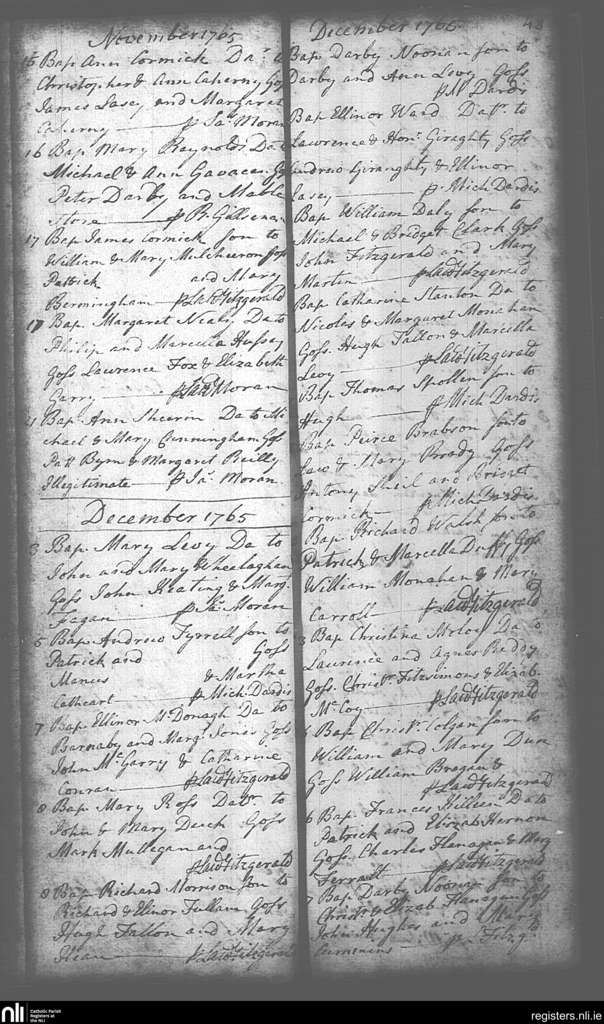 November 1765
15 Bap Ann Cormick Dar to
Christopher & Ann Caherny Gos
James Casey and Margaret
Caherny — p Jas Moran
16 Bap. Mary Reynolds Da to
Michael & Ann Gavacan Gos
Peter Darby and Mable
Store — p B. Gillsenan
17 Bap James Cormick son to
William & Mary Mulcheeron Gos
Patrick and Mary
Bermingham — p Law Fitzgerald
17 Bap. Margaret Nealy Da to
Philip and Marcella Hussey
Goss Lawrence Fox & Elizabeth
Garry — p Law Moran
21 Bap. Ann Shearin Da to Mi
chael & Mary Cunningham Gos
Patt Byrn & Margaret Reilly
Illegitimate — p Ja. Moran
December 1765
3 Bap. Mary Levy Da to
John and Mary Wheelaghan
Goss John Keating & Marg.
Fagan — p Ja. Moran
5 Bap. Andrew Tyrrell son to
Patrick and Goss
Mences & Martha
Cathcart — p Mich Dardis
7 Bap. Ellinor McDonagh Da to
Barnaby and Marg. Jones Goss
John McGarry & Catharine
Conran — p Law Fitzgerald
8 Bap. Mary Ross Datr. to
John & Mary Deick Goss
Mark Mullegan and
p Law Fitzgerald
8 Bap. Richard Morrison son to
Richard & Elinor Fullam Goss
Hugh Fallon and Mary
p Law Fitzgerald
December 1765 48
Bap Darby Noonan son to
Darby and Ann Levy Goss
p M Dardis
Bap Ellinor Ward Datr. to
Lawrence & Honr. Giraghty Goss
Andrew Giraughty & Ellinor
Casey — p. Mich Dardis
Bap William Daly son to
Michael & Bridget Clark Goss
John Fitzgerald and Mary
Martin — p Law Fitzgerald
Bap Catharine Stanton Da to
Nicolas & Margaret Monahan
Goss. Hugh Fallon & Marcella
Levy — p Law Fitzgerald
Bap Thomas Spollen son to
Hugh — p Mich Dardis
Bap. Peirce Brabson son to
Law & Mary Brody Goss
Antony Sheil and Bridget
Cormick — p Mich Dardis
Bap. Richard Walsh son to
Patrick & Marcella Duffy Goss
William Monahan & Mary
Carroll — p Law Fitzgerald
3 Bap Christina Da to
Laurence and Agnes Reddy
Goss. Christr. Fitzsimons & Elizab.
McCoy — p Law Fitzgerald
Bap Christr. Colgan son to
William and Mary Dun
Goss William Bragan &
p Law Fitzgerald
6 Bap. Frances Killeen Da to
Patrick and Elizab Hernon
Goss. Charles Flanagan & Mary
Ferrall — p Law Fitzgerald
7 Bap Darby Noonan son to
Christr & Elizab Flanagan Gos
John Hughes and Mary
Cummins — p Fitzgl
nli Catholic Parish Registers at the NLI
registers.nli.ie